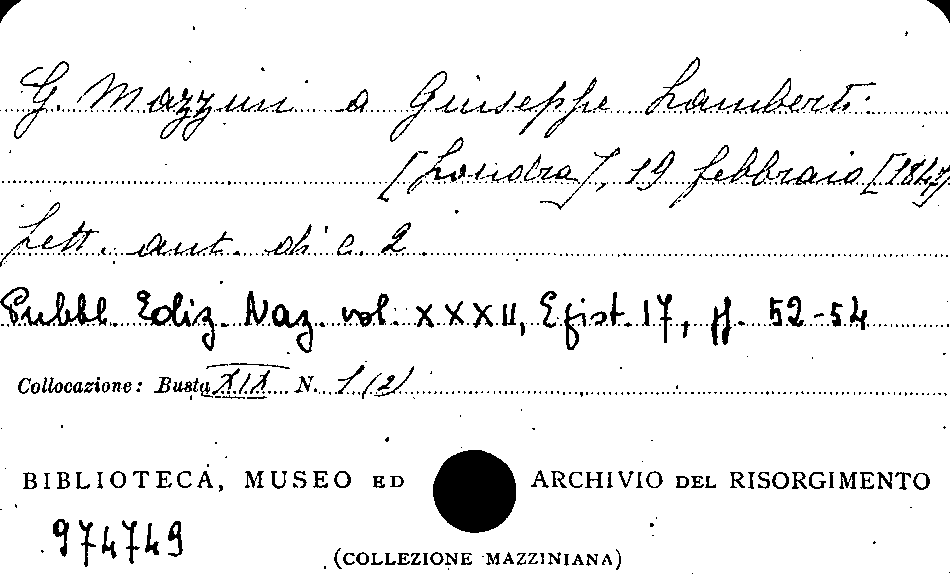 G. Mazzini a Giuseppe Lamberti.
[Londra], 19 febbraio [1847]
Lett. aut. di c. 2.
Pubbl. Ediz. Naz. vol. XXXII, Epist. 17, pp. 52-54
Collocazione: Busta XIX N. 1 (2)
BIBLIOTECA, MUSEO ED ARCHIVIO DEL RISORGIMENTO
974749
(COLLEZIONE MAZZINIANA)